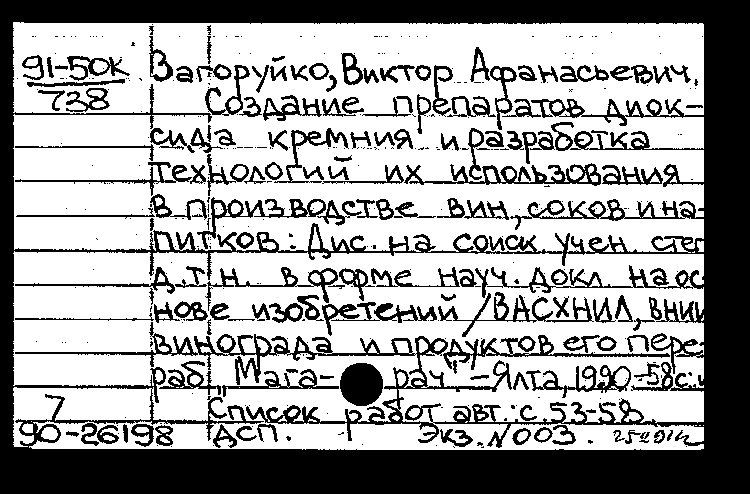 91-50К Загоруйко, Виктор Афанасьевич.
738 Создание препаратов диок-
сида кремния и разработка
технологий их использования
в производстве вин, соков и на-
питков: Дис. на соиск. учен. степ
д.т.н. в форме науч. докл. на ос
нове изобретений /ВАСХНИЛ, ВНИИ
винограда и продуктов его пере-
раб. "Мага- рач". - Ялта, 1990. - 58с.
7 Список работ авт.: с. 53-58.
90-26198 ДСП. Экз. N 003.